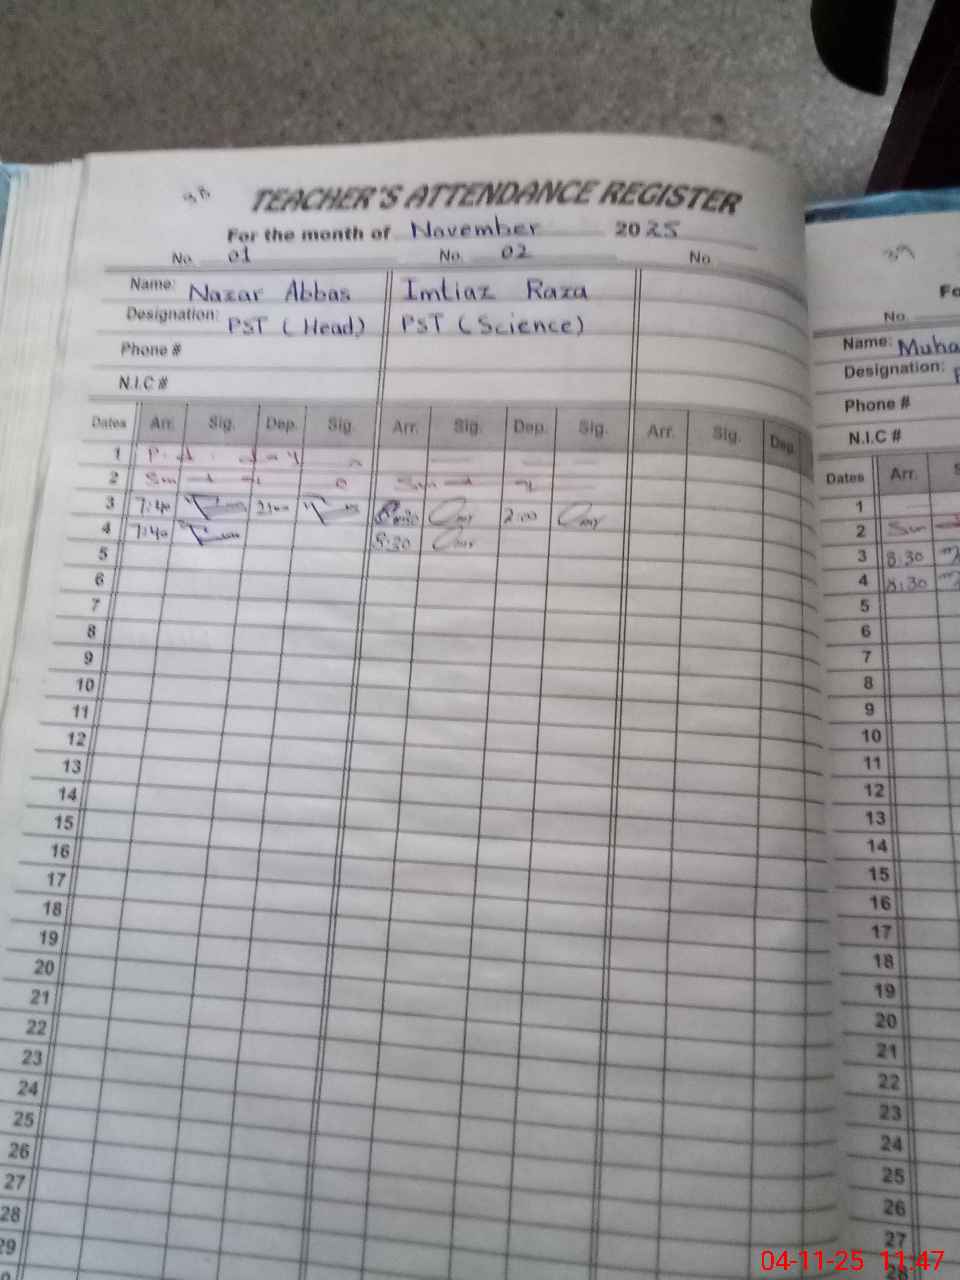 38
TEACHER'S ATTENDANCE REGISTER
For the month of November 2025
No. 01 No. 02 No.
Name: Nazar Abbas Imtiaz Raza
Designation: PST (Head) PST (Science)
Phone #
N.I.C #
Dates Arr. Sig. Dep. Sig. Arr. Sig. Dep. Sig. Arr. Sig. Dep.
1
2 Sun
3 7:40 2:00 2:00
4 7:40 8:30
5
6
7
8
9
10
11
12
13
14
15
16
17
18
19
20
21
22
23
24
25
26
27
28
29
Fo
No.
Name: Muha
Designation:
Phone #
N.I.C #
Dates Arr. S
1
2 Sun
3 8:30
4 8:30
5
6
7
8
9
10
11
12
13
14
15
16
17
18
19
20
21
22
23
24
25
26
27
28
04-11-25 11:47